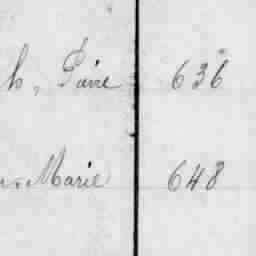 h, Pavie 636
Marie 648